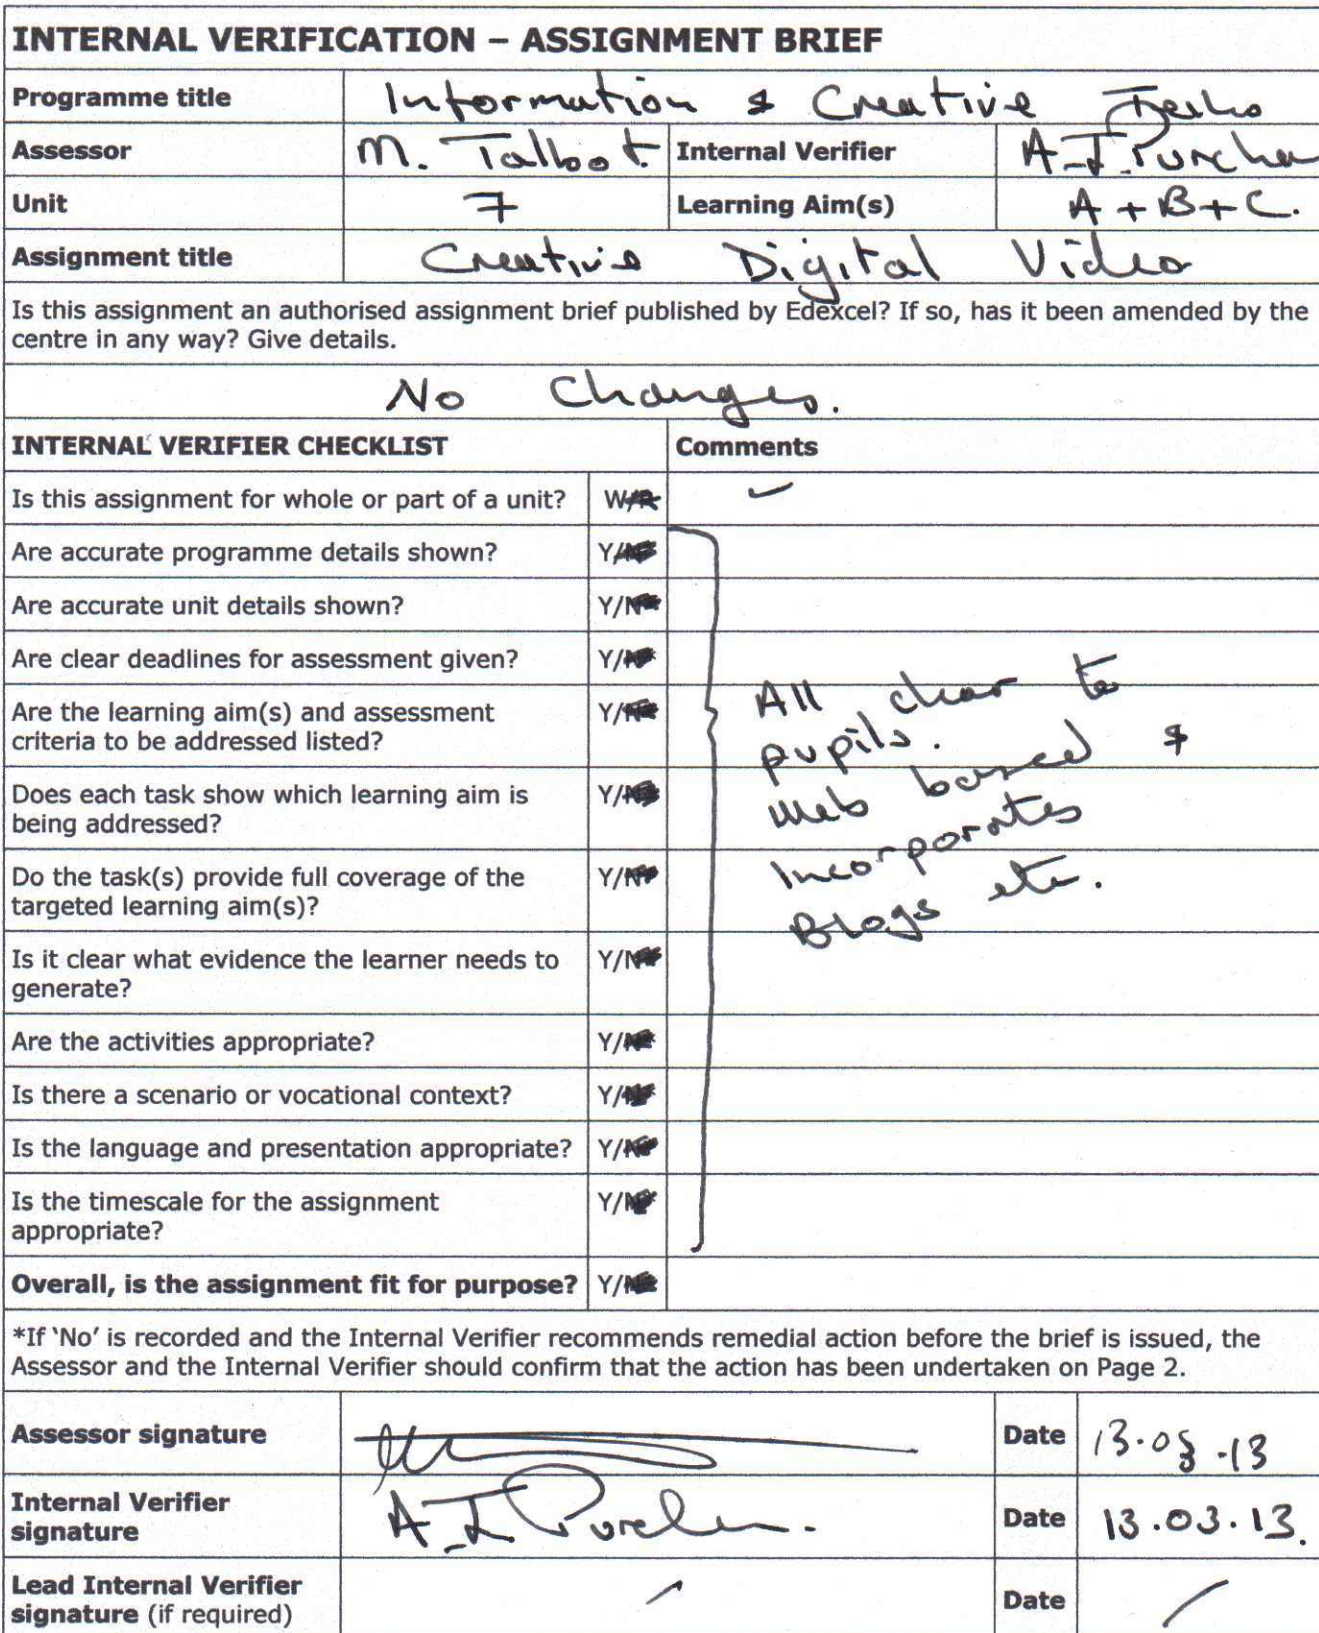 INTERNAL VERIFICATION – ASSIGNMENT BRIEF
Programme title Information & Creative
Assessor M. Talbot. Internal Verifier A.I.
Unit 7 Learning Aim(s) A + B + C.
Assignment title Creative Digital Video
Is this assignment an authorised assignment brief published by Edexcel? If so, has it been amended by the
centre in any way? Give details.
No Changes.
INTERNAL VERIFIER CHECKLIST Comments
Is this assignment for whole or part of a unit? W/P
Are accurate programme details shown? Y/N*
Are accurate unit details shown? Y/N*
Are clear deadlines for assessment given? Y/N*
Are the learning aim(s) and assessment
criteria to be addressed listed? Y/N*
Does each task show which learning aim is
being addressed? Y/N*
Do the task(s) provide full coverage of the
targeted learning aim(s)? Y/N*
Is it clear what evidence the learner needs to
generate? Y/N*
Are the activities appropriate? Y/N*
Is there a scenario or vocational context? Y/N*
Is the language and presentation appropriate? Y/N*
Is the timescale for the assignment
appropriate? Y/N*
All clear to
pupils.
Web based &
Incorporates
Blogs etc.
Overall, is the assignment fit for purpose? Y/N*
*If ‘No’ is recorded and the Internal Verifier recommends remedial action before the brief is issued, the
Assessor and the Internal Verifier should confirm that the action has been undertaken on Page 2.
Assessor signature Date 13.03.13
Internal Verifier
signature A.I. Date 13.03.13.
Lead Internal Verifier
signature (if required) Date